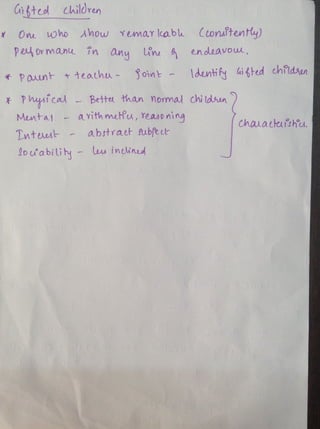 Gifted children
* One who show remarkable (consitently)
performance in any line of endeavour.
* Parent + teacher - Joint - Identify Gifted children
* Physical - Better than normal children
Mental - arithmetic, reasoning
Interest - abstract subject
Sociability - less inclined
characteristics